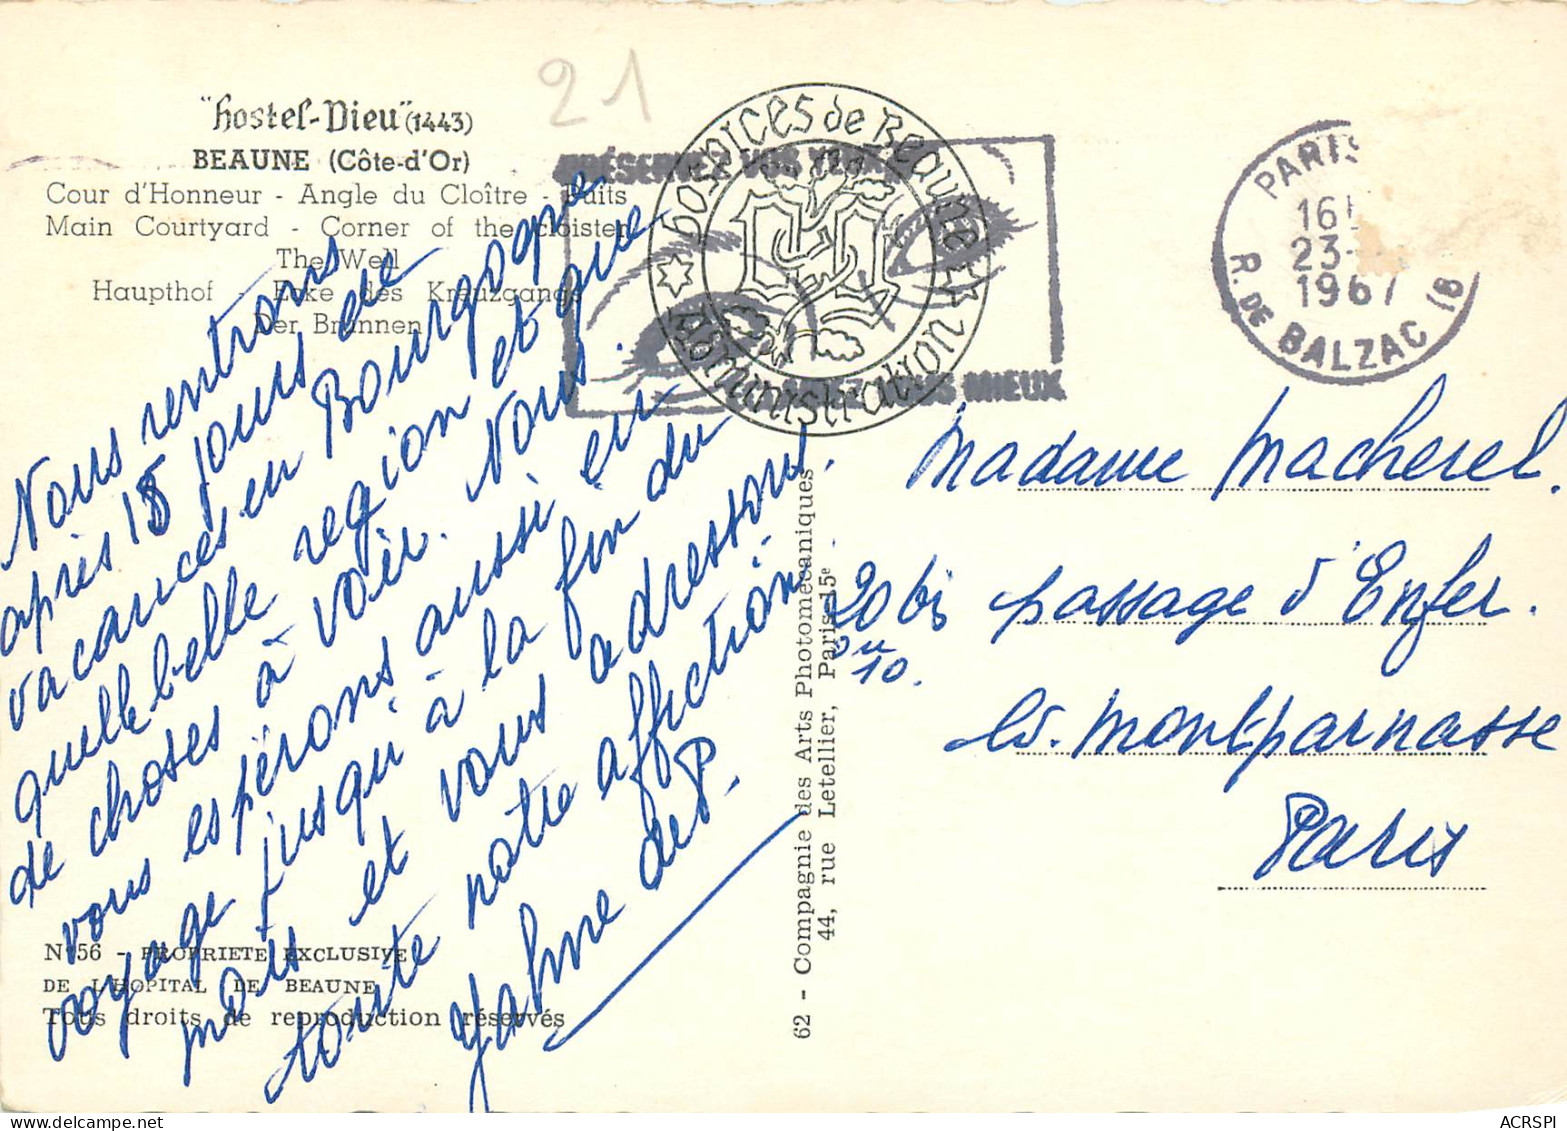 21
"hostel-Dieu" (1443)
BEAUNE (Côte-d'Or)
Cour d'Honneur - Angle du Cloître - Puits
Main Courtyard - Corner of the cloister
The Well
Haupthof - Ecke des Kreuzgangs
Der Brunnen
hospices de Beaune
Administration
PRÉSERVEZ VOS YEUX
MIEUX
PARIS
16
23-
1967
R. DE BALZAC (8
Nous rentrons
après 15 jours de
vacances en Bourgogne
quelle belle région et que
de choses à voir. Nous
vous espérons aussi en
voyage jusqu'à la fin du
mois et vous adressons
toute notre affection
de P.
Madame Macherel.
20 bis passage d'Enfer.
ou 10.
Bd. Montparnasse
Paris
62 - Compagnie des Arts Photomécaniques
44, rue Letellier, Paris-15e
N° 56 - PROPRIETE EXCLUSIVE
DE L'HOPITAL DE BEAUNE
Tous droits de reproduction réservés
ACRSPI